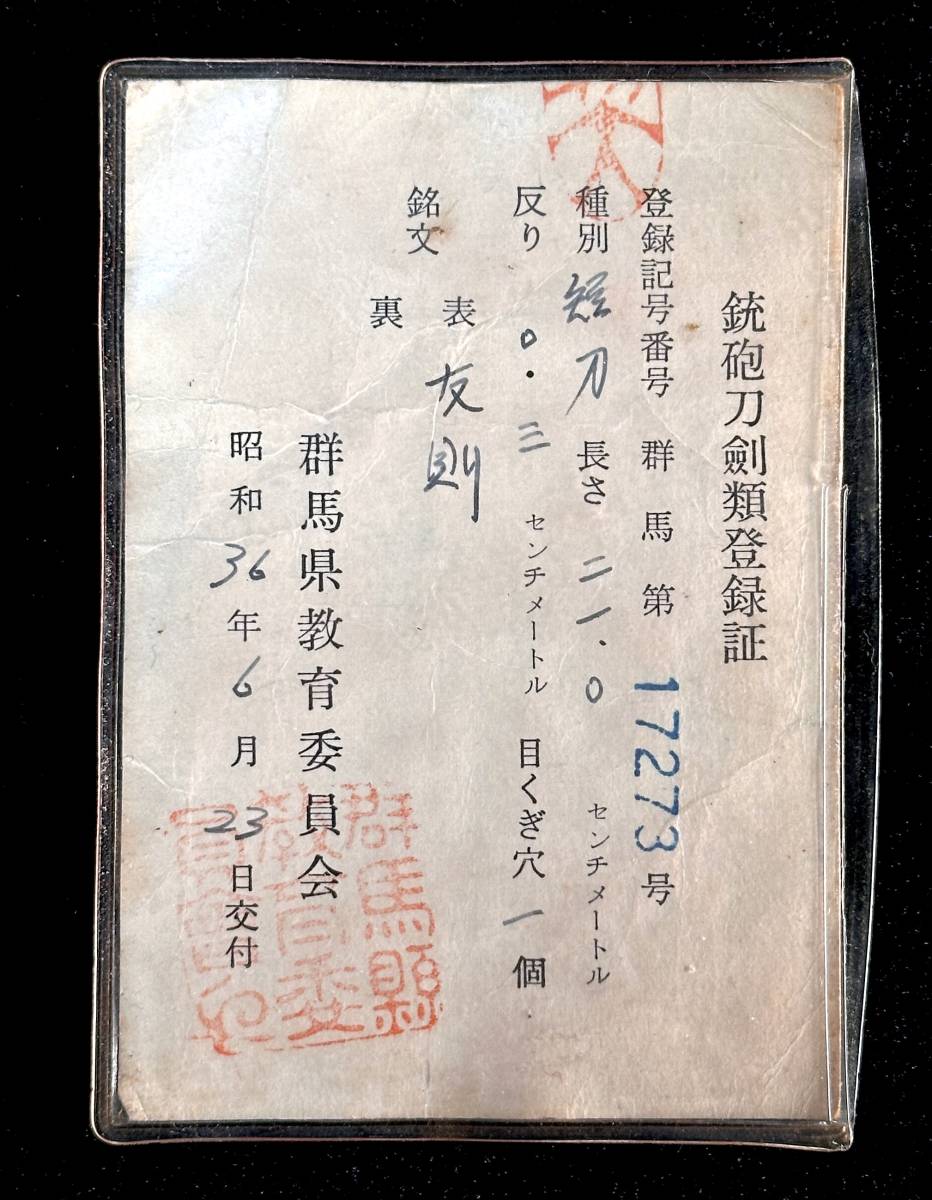 銃砲刀劍類登録証
登録記号番号 群馬第 17273 号
種別 短刀 長さ 二一.〇 センチメートル
反り 〇.三 センチメートル 目くぎ穴 一 個
銘文
表 友則
裏
群馬県教育委員会
昭和36年6月23日交付
群馬縣
教育委
員會印